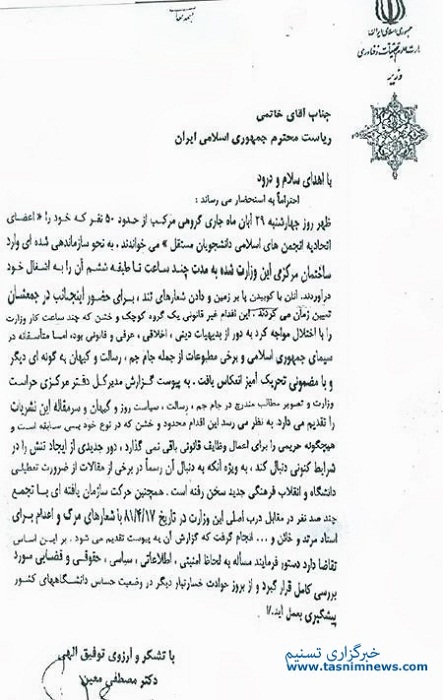 بسمه تعالی
جمهوری اسلامی ایران
وزارت علوم تحقیقات و فناوری
وزیر
جناب آقای خاتمی
ریاست محترم جمهوری اسلامی ایران
با اهدای سلام و درود
احتراماً به استحضار می رساند :
ظهر روز چهارشنبه ۲۹ آبان ماه جاری گروهی مرکب از حدود ۵۰ نفر که خود را « اعضای
اتحادیه انجمن های اسلامی دانشجویان مستقل » می خواندند ، به نحو سازماندهی شده ای وارد
ساختمان مرکزی این وزارت شده به مدت چند ساعت تا طبقه ششم آن را به اشغال خود
درآوردند. آنان با کوبیدن پا بر زمین و دادن شعارهای تند ، برای حضور اینجانب در جمعشان
تعیین زمان می کردند . این اقدام غیر قانونی یک گروه کوچک و خشن که چند ساعت کار وزارت
را با اختلال مواجه کرد به دور از بدیهیات دینی ، اخلاقی ، عرفی و قانونی بود، اما متأسفانه در
سیمای جمهوری اسلامی و برخی مطبوعات از جمله جام جم ، رسالت و کیهان به گونه ای دیگر
و با مضمونی تحریک آمیز انعکاس یافت . به پیوست گزارش مدیرکل دفتر مرکزی حراست
وزارت و تصویر مطالب مندرج در جام جم ، رسالت ، سیاست روز و کیهان و سرمقاله این نشریات
را تقدیم می دارد. به نظر می رسد این اقدام محدود و خشن که در نوع خود بسی سابقه است و
هیچگونه حریمی را برای اعمال وظایف قانونی باقی نمی گذارد ، دور جدیدی از ایجاد تنش را در
شرایط کنونی دنبال کند ، به ویژه آنکه به دنبال آن رسماً در برخی از مقالات از ضرورت تعطیلی
دانشگاه و انقلاب فرهنگی جدید سخن رفته است . همچنین حرکت سازمان یافته ای با تجمع
چند صد نفر در مقابل درب اصلی این وزارت در تاریخ ۸۱/۴/۱۷ با شعارهای مرگ و اعدام برای
استاد مرتد و خائن و ... انجام گرفت که گزارش آن به پیوست تقدیم می شود . بر این اساس
تقاضا دارد دستور فرمایند مسأله به لحاظ امنیتی ، اطلاعاتی ، سیاسی ، حقوقی و قضایی مورد
بررسی کامل قرار گیرد و از بروز حوادث خسارتبار دیگر در وضعیت حساس دانشگاههای کشور
پیشگیری بعمل آید./
با تشکر و آرزوی توفیق الهی
دکتر مصطفی معین
خبرگزاری تسنیم
www.tasnimnews.com